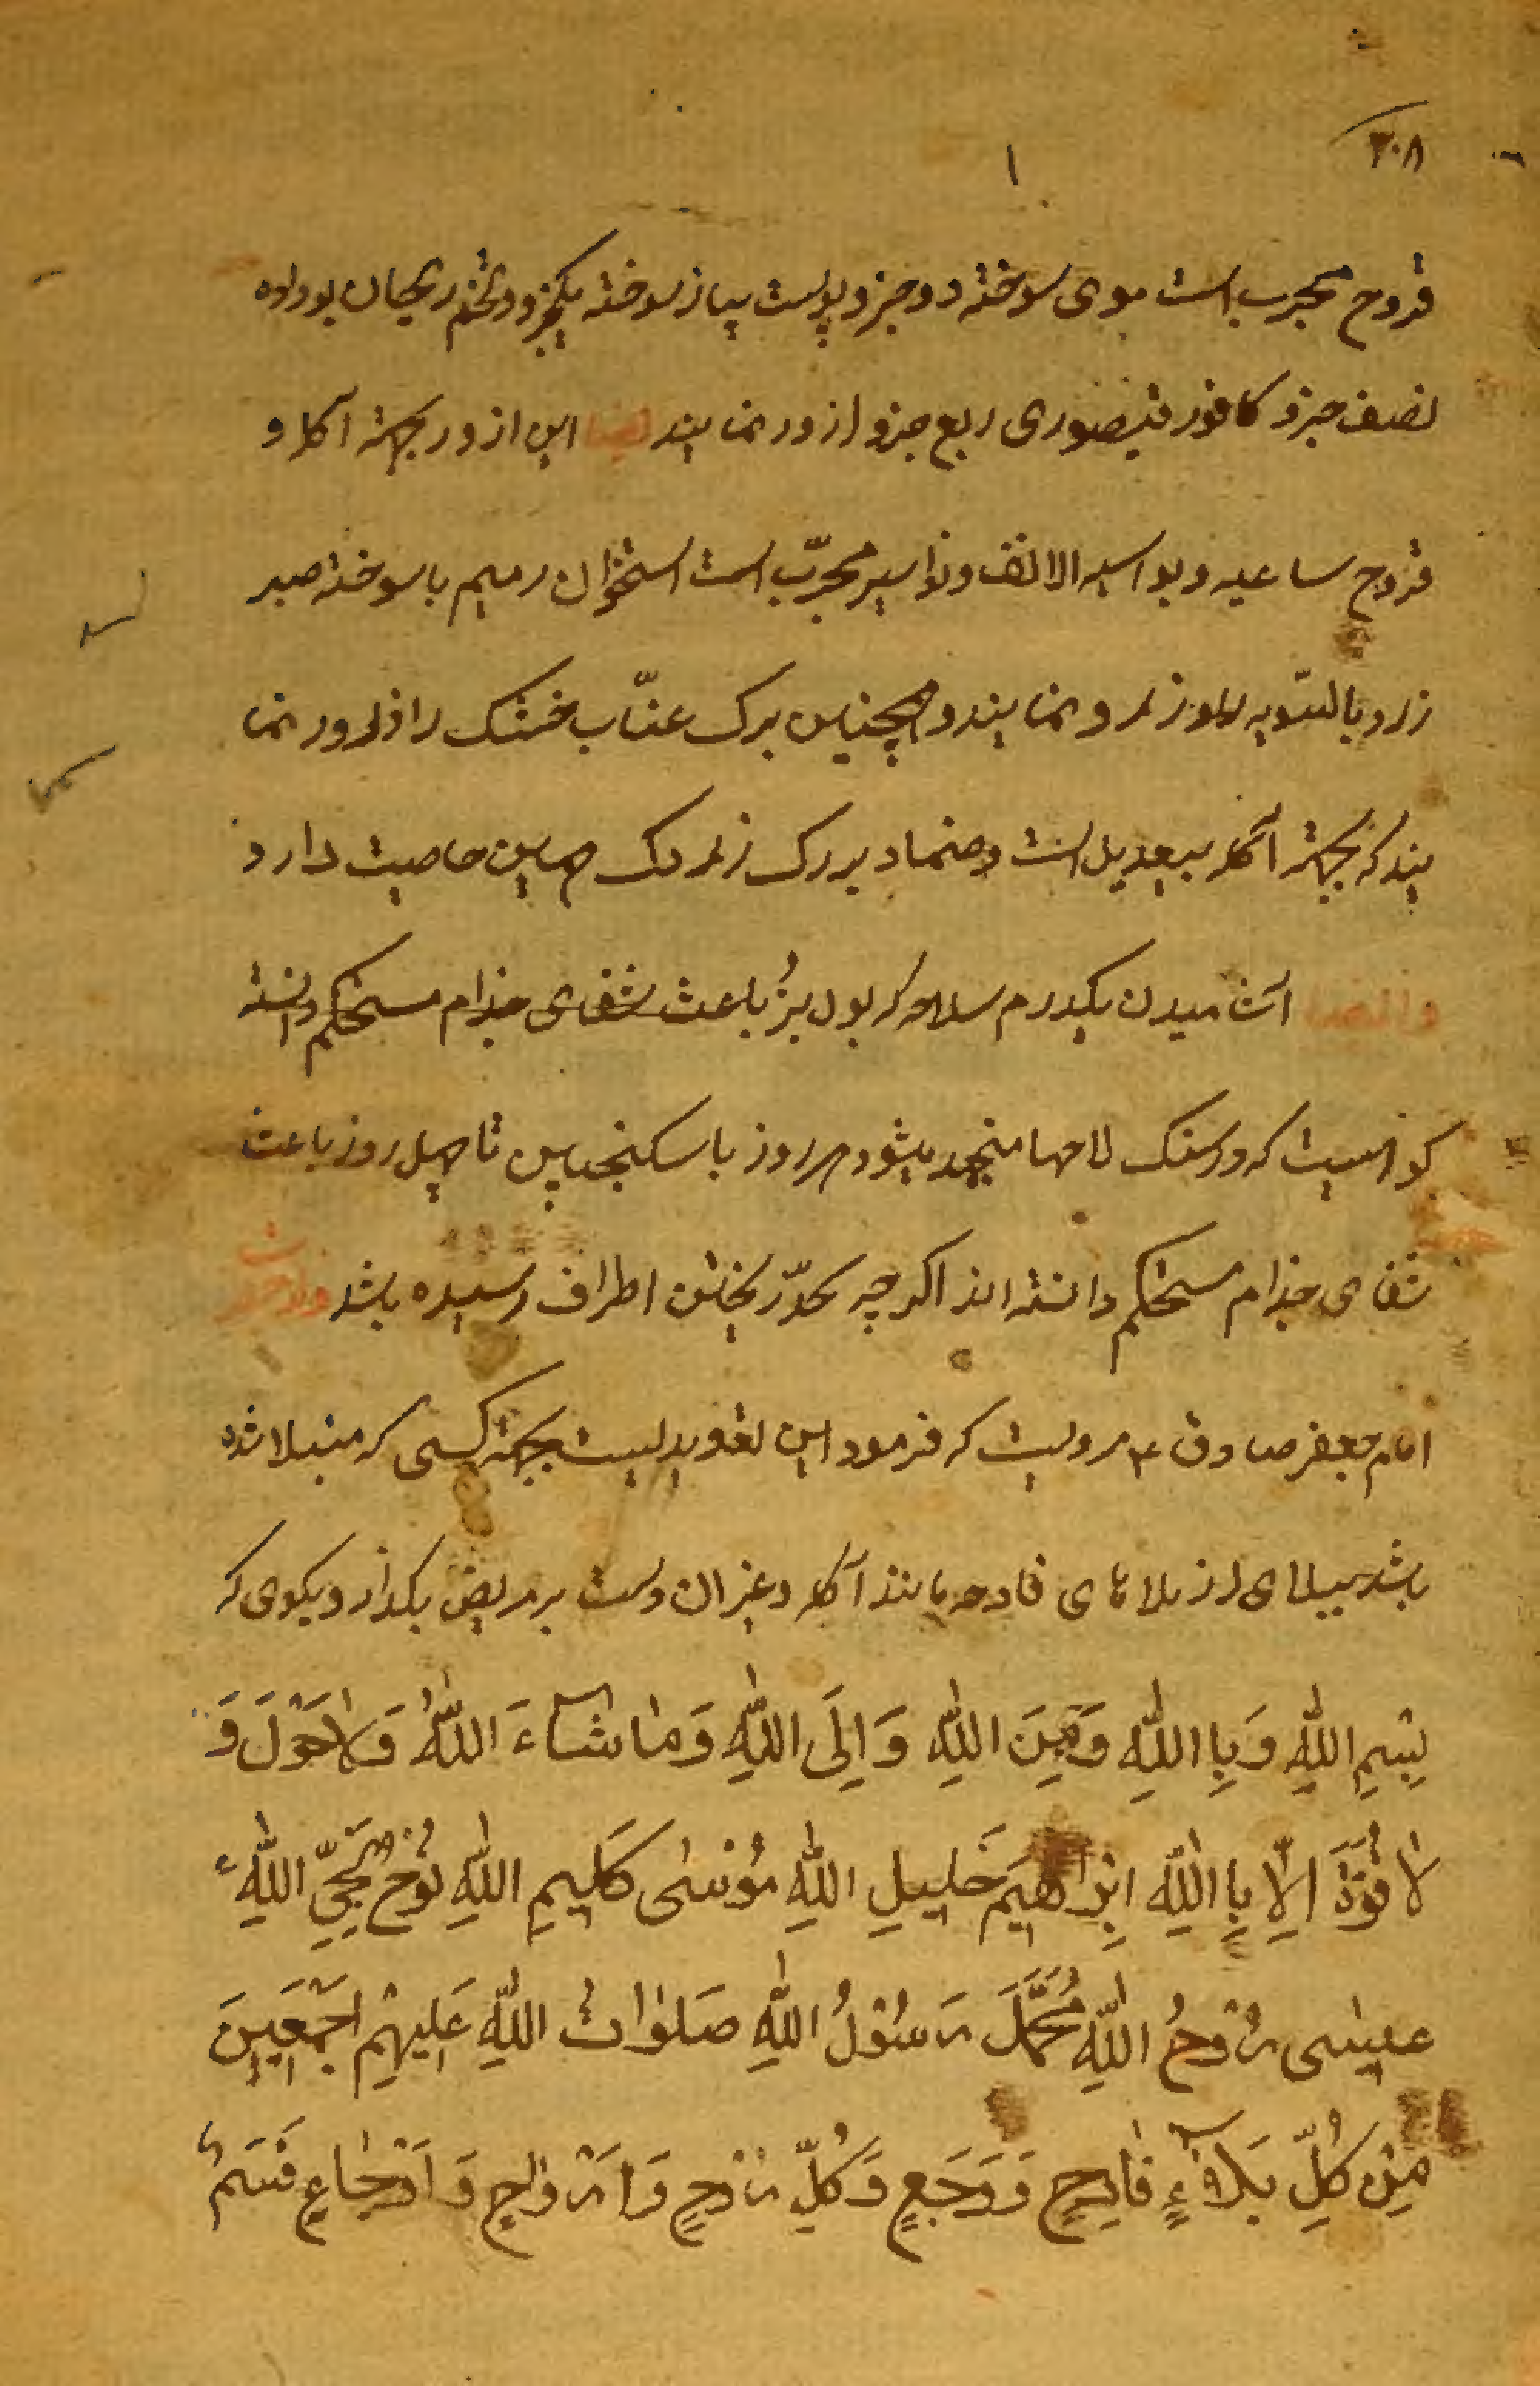 ۳۰۸
قروح مجرب است موی سوخته دو جزو پوست پیاز سوخته یکجزو و تخم ریحان بوداده
نصف جزو کافور قیصوری ربع جزو ازور نمایند ایضا این ازور بجهة آکله و
قروح ساعیه و بواسیر الانف و نواسیر مجرّب است استخوان رمیم با سوخته صبر
زرد بالسّویه نمایند و همچنین برک عنّاب خشک را ذرور نما
یند که بجهة آکله بیعدیل است و ضماد برک زردک همین خاصیت دارد
و ایضا آشامیدن یکدرم سلاحه که بول بز باعث شفای جذام مستحکم دانسته
کوهیست که در سنک لاخها منجمد میشود هر روز با سکنجبین تا چهل روز باعث
شفای جذام مستحکم دانسته اند اکر چه بحدّ ریختن اطراف رسیده باشد و از حضرت
امام جعفر صادق ع مرویست که فرمود این تعویذیست بجهة کسی که مبتلا شده
باشد ببلای از بلاهای فادحه مانند آکله و غیر ان دست بر مریض بکذار و بکوی که
بِسْمِ اللّٰهِ وَبِاللّٰهِ وَمِنَ اللّٰهِ وَاِلَی اللّٰهِ وَمٰا شٰآءَ اللّٰهُ وَلٰا حَوْلَ وَ
لٰا قُوَّةَ اِلّٰا بِاللّٰهِ اِبْرٰاهِیمَ خَلِیلِ اللّٰهِ مُوْسٰی کَلِیمِ اللّٰهِ نُوْحٍ نَجِیِّ اللّٰهِ
عیسٰی رُوْحُ اللّٰهِ مُحَمَّد رَسُوْلُ اللّٰهِ صَلَوٰاتُ اللّٰهِ عَلَیْهِمْ اَجْمَعِینَ
مِنْ کُلِّ بَلٰآءٍ فٰادِحٍ وَوَجَعٍ وَکُلِّ رَوْحٍ وَاَرْوٰاحٍ وَاَوْجٰاعٍ قَسَم